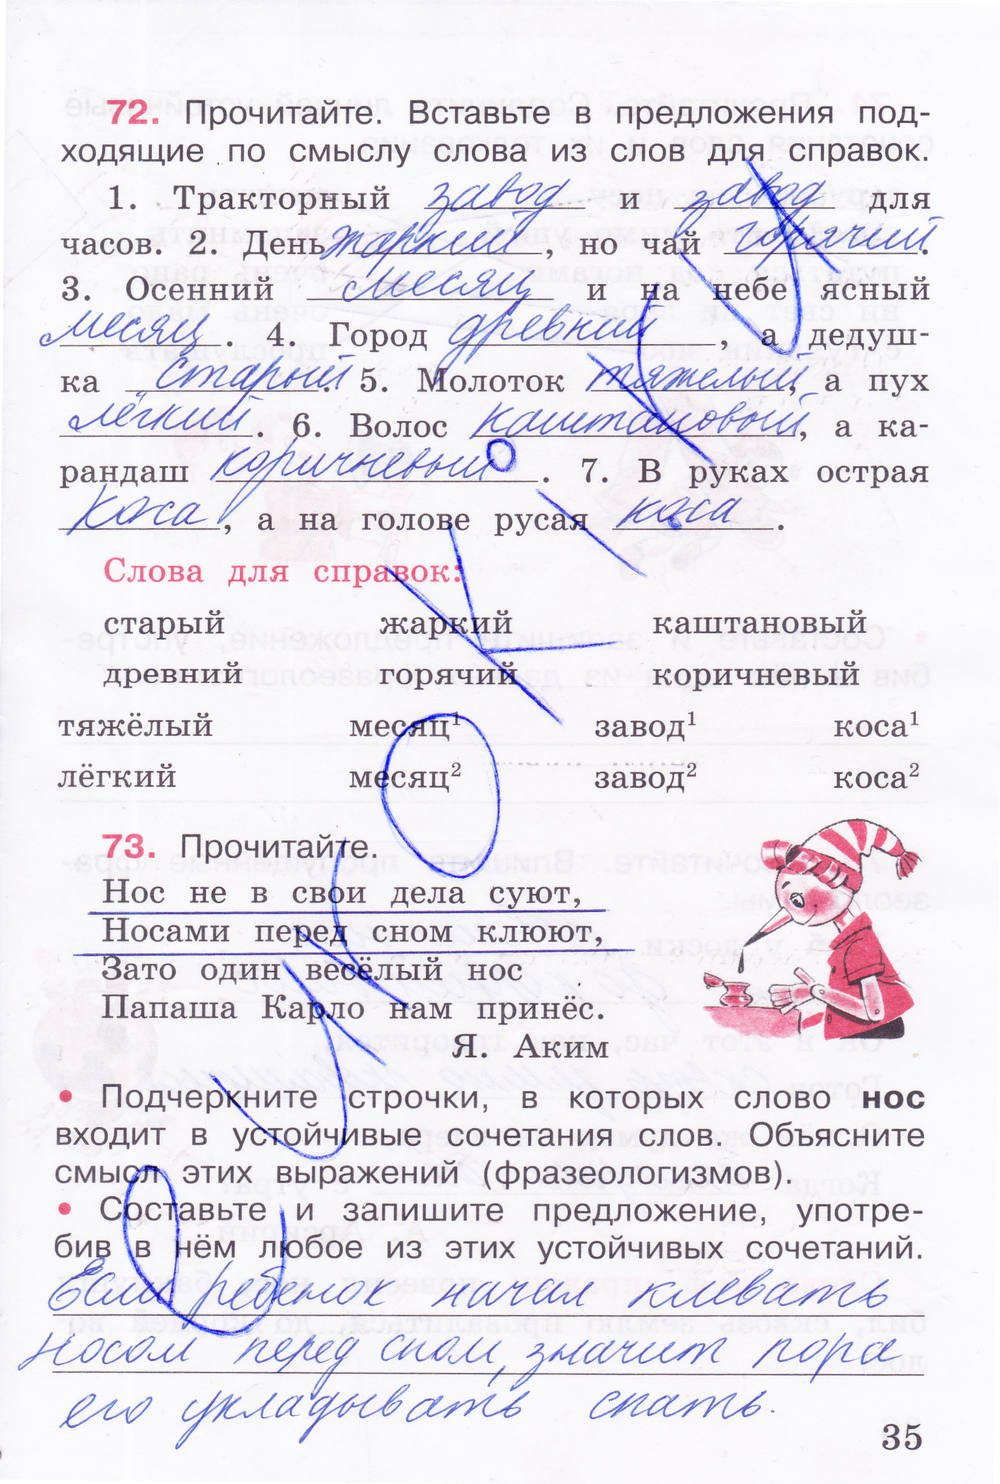 72. Прочитайте. Вставьте в предложения под-
ходящие по смыслу слова из слов для справок.
1. Тракторный завод и завод для
часов. 2. День жаркий, но чай горячий.
3. Осенний месяц и на небе ясный
месяц. 4. Город древний, а дедуш-
ка старый. 5. Молоток тяжелый, а пух
лёгкий. 6. Волос каштановый, а ка-
рандаш коричневый. 7. В руках острая
коса, а на голове русая коса.
Слова для справок:
старый жаркий каштановый
древний горячий коричневый
тяжёлый месяц¹ завод¹ коса¹
лёгкий месяц² завод² коса²
73. Прочитайте.
Нос не в свои дела суют,
Носами перед сном клюют,
Зато один весёлый нос
Папаша Карло нам принёс.
Я. Аким
• Подчеркните строчки, в которых слово нос
входит в устойчивые сочетания слов. Объясните
смысл этих выражений (фразеологизмов).
• Составьте и запишите предложение, употре-
бив в нём любое из этих устойчивых сочетаний.
Если ребенок начал клевать
носом перед сном, значит пора
его укладывать спать.
35